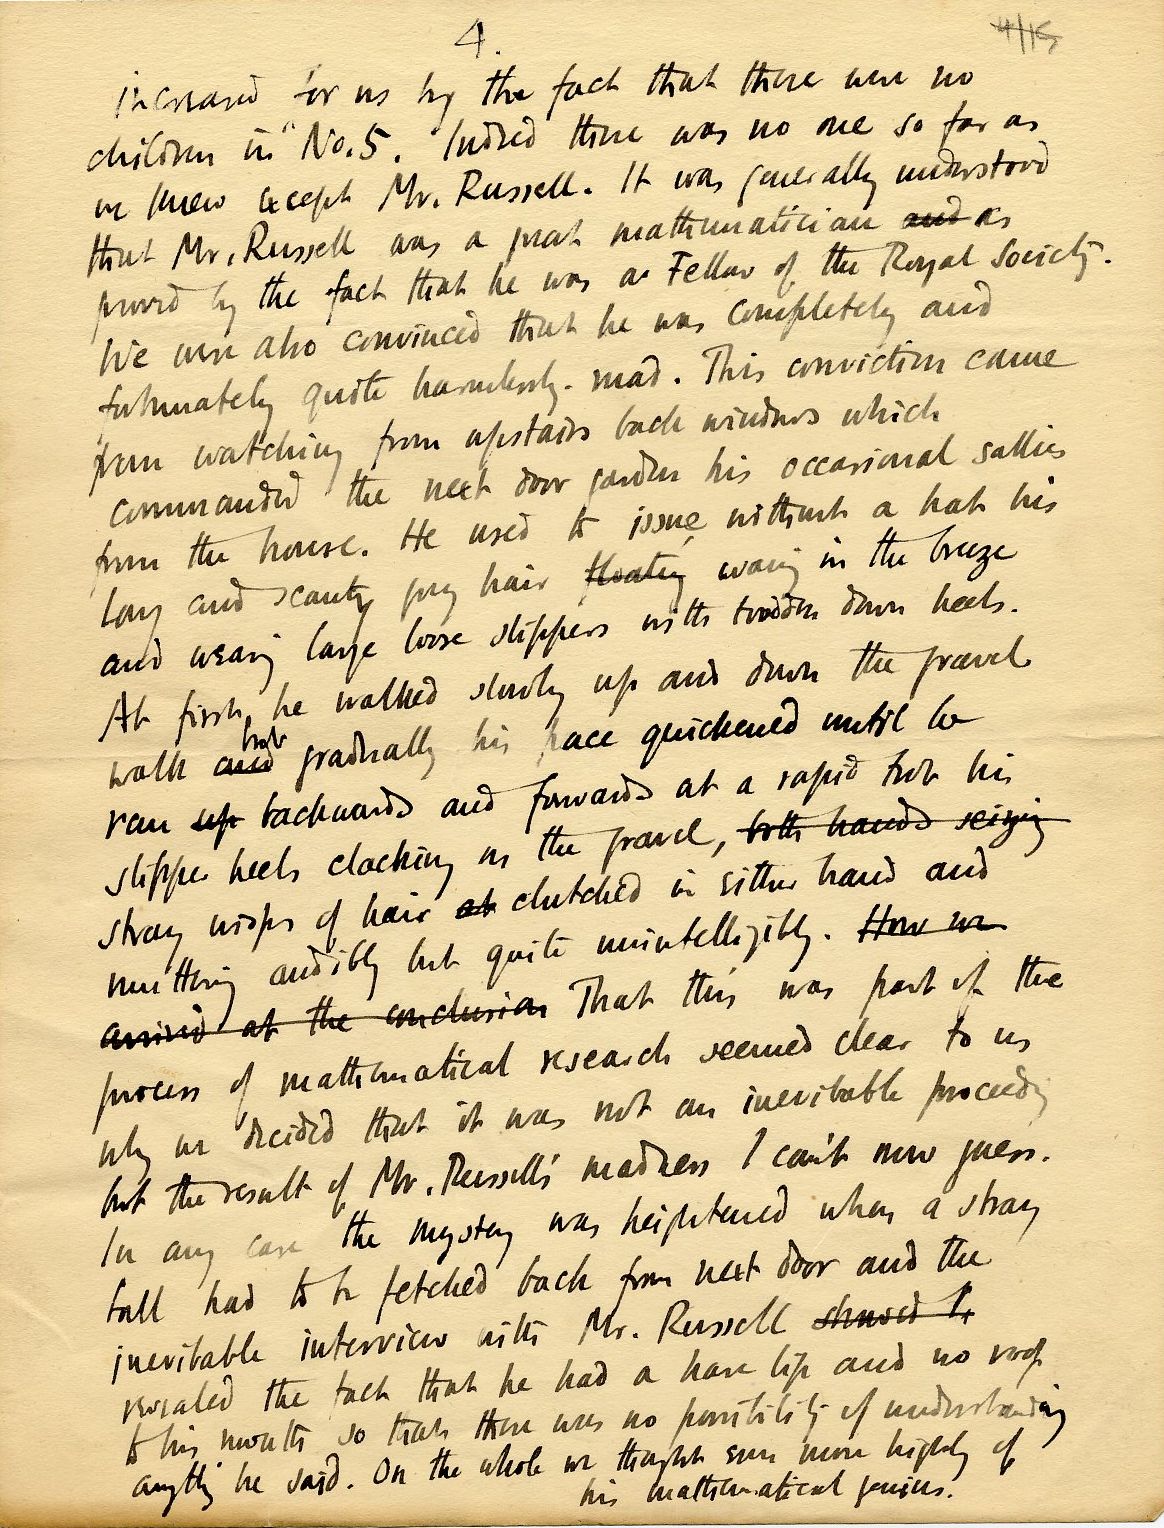 4.
4/15
increased for us by the fact that there were no
children in "No.5. Indeed there was no one so far as
we knew except Mr. Russell. It was generally understood
that Mr. Russell was a great mathematician and as
proved by the fact that he was a Fellow of the Royal Society.
We were also convinced that he was completely and
fortunately quite harmlessly mad. This conviction came
from watching from upstairs back windows which
commanded the next door garden his occasional sallies
from the house. He used to issue, without a hat his
long and scanty grey hair floating waving in the breeze
and wearing large loose slippers with trodden down heels.
At first, he walked slowly up and down the gravel
walk and but gradually his pace quickened until he
ran up backwards and forwards at a rapid trot his
slipper heels clacking on the gravel, both hands seizing
stray wisps of hair at clutched in either hand and
muttering audibly but quite unintelligibly. How we
arrived at the conclusion That this was part of the
process of mathematical research seemed clear to us
why we decided that it was not an inevitable proceeding
but the result of Mr. Russell's madness I can't now guess.
In any case the mystery was heightened when a stray
ball had to be fetched back from next door and the
inevitable interview with Mr. Russell showed
revealed the fact that he had a hare lip and no roof
to his mouth so that there was no possibility of understanding
anything he said. On the whole we thought even more highly of
his mathematical genius.